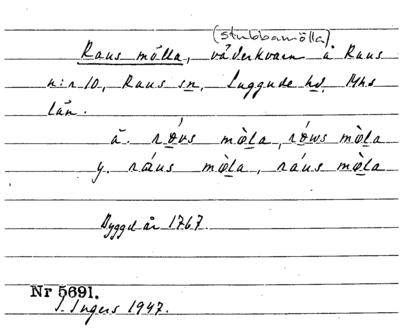 (stubbamölla)
Raus mölla, väderkvarn å Raus
n:r 10, Raus sn, Luggude hd, Mhs
län.
ä. rǿvs mø̀la, rǿws mø̀la
y. ráus mø̀la, ráus mø̀la
Byggd år 1767.
Nr 5691.
I. Ingers 1947.